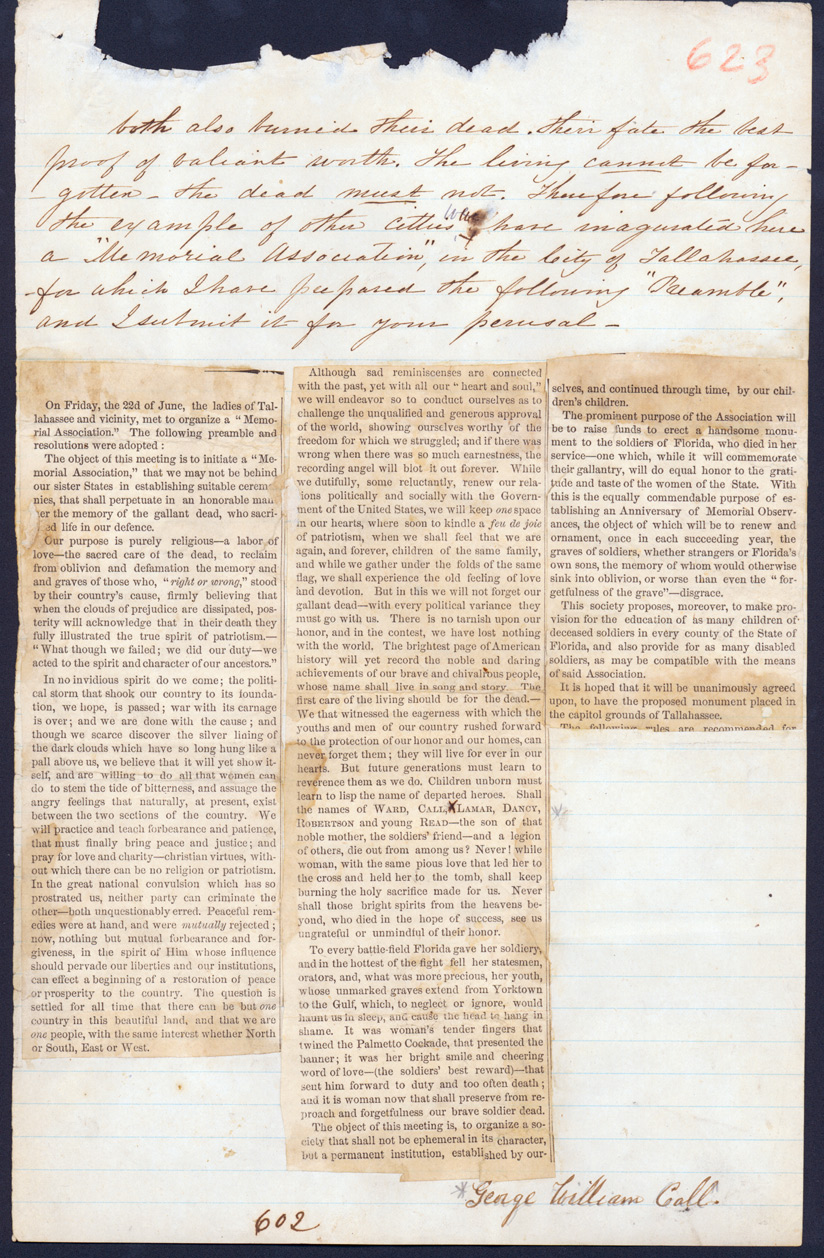 623
both also burned their dead. their fate the best
proof of valiant worth. The living cannot be for-
gotten - the dead must not. Therefore following
the example of other citties we have inagurated here
a "Memorial Association", in the City of Tallahassee,
for which I have prepared the following "Preamble",
and I submit it for your perusal -
On Friday, the 22d of June, the ladies of Tal-
lahassee and vicinity, met to organize a "Memo-
rial Association." The following preamble and
resolutions were adopted:
The object of this meeting is to initiate a "Me-
morial Association," that we may not be behind
our sister States in establishing suitable cerem-
nies, that shall perpetuate in an honorable man
er the memory of the gallant dead, who sacri-
ed life in our defence.
Our purpose is purely religious—a labor of
love—the sacred care of the dead, to reclaim
from oblivion and defamation the memory and
and graves of those who, "right or wrong," stood
by their country's cause, firmly believing that
when the clouds of prejudice are dissipated, pos-
terity will acknowledge that in their death they
fully illustrated the true spirit of patriotism.—
"What though we failed; we did our duty—we
acted to the spirit and character of our ancestors."
In no invidious spirit do we come; the politi-
cal storm that shook our country to its founda-
tion, we hope, is passed; war with its carnage
is over; and we are done with the cause; and
though we scarce discover the silver lining of
the dark clouds which have so long hung like a
pall above us, we believe that it will yet show it-
self, and are willing to do all that women can
do to stem the tide of bitterness, and assuage the
angry feelings that naturally, at present, exist
between the two sections of the country. We
will practice and teach forbearance and patience,
that must finally bring peace and justice; and
pray for love and charity—christian virtues, with-
out which there can be no religion or patriotism.
In the great national convulsion which has so
prostrated us, neither party can criminate the
other—both unquestionably erred. Peaceful rem-
edies were at hand, and were mutually rejected;
now, nothing but mutual forbearance and for-
giveness, in the spirit of Him whose influence
should pervade our liberties and our institutions,
can effect a beginning of a restoration of peace
or prosperity to the country. The question is
settled for all time that there can be but one
country in this beautiful land, and that we are
one people, with the same interest whether North
or South, East or West.
Although sad reminiscenses are connected
with the past, yet with all our "heart and soul,"
we will endeavor so to conduct ourselves as to
challenge the unqualified and generous approval
of the world, showing ourselves worthy of the
freedom for which we struggled; and if there was
wrong when there was so much earnestness, the
recording angel will blot it out forever. While
we dutifully, some reluctantly, renew our rela-
ions politically and socially with the Govern-
ment of the United States, we will keep one space
in our hearts, where soon to kindle a feu de joie
of patriotism, when we shall feel that we are
again, and forever, children of the same family,
and while we gather under the folds of the same
flag, we shall experience the old feeling of love
and devotion. But in this we will not forget our
gallant dead—with every political variance they
must go with us. There is no tarnish upon our
honor, and in the contest, we have lost nothing
with the world. The brightest page of American
history will yet record the noble and daring
achievements of our brave and chivalrous people,
whose name shall live in song and story. The
first care of the living should be for the dead.—
We that witnessed the eagerness with which the
youths and men of our country rushed forward
to the protection of our honor and our homes, can
never forget them; they will live for ever in our
hearts. But future generations must learn to
reverence them as we do. Children unborn must
learn to lisp the name of departed heroes. Shall
the names of WARD, CALL, LAMAR, DANCY,
ROBERTSON and young READ—the son of that
noble mother, the soldiers' friend—and a legion
of others, die out from among us? Never! while
woman, with the same pious love that led her to
the cross and held her to the tomb, shall keep
burning the holy sacrifice made for us. Never
shall those bright spirits from the heavens be-
yond, who died in the hope of success, see us
ungrateful or unmindful of their honor.
To every battle-field Florida gave her soldiery,
and in the hottest of the fight fell her statesmen,
orators, and, what was more precious, her youth,
whose unmarked graves extend from Yorktown
to the Gulf, which, to neglect or ignore, would
haunt us in sleep, and cause the head to hang in
shame. It was woman's tender fingers that
twined the Palmetto Cockade, that presented the
banner; it was her bright smile and cheering
word of love—(the soldiers' best reward)—that
sent him forward to duty and too often death;
and it is woman now that shall preserve from re-
proach and forgetfulness our brave soldier dead.
The object of this meeting is, to organize a so-
ciety that shall not be ephemeral in its character,
but a permanent institution, established by our-
selves, and continued through time, by our chil-
dren's children.
The prominent purpose of the Association will
be to raise funds to erect a handsome monu-
ment to the soldiers of Florida, who died in her
service—one which, while it will commemorate
their gallantry, will do equal honor to the grati-
tude and taste of the women of the State. With
this is the equally commendable purpose of es-
tablishing an Anniversary of Memorial Observ-
ances, the object of which will be to renew and
ornament, once in each succeeding year, the
graves of soldiers, whether strangers or Florida's
own sons, the memory of whom would otherwise
sink into oblivion, or worse than even the "for-
getfulness of the grave"—disgrace.
This society proposes, moreover, to make pro-
vision for the education of as many children of
deceased soldiers in every county of the State of
Florida, and also provide for as many disabled
soldiers, as may be compatible with the means
of said Association.
It is hoped that it will be unanimously agreed
upon, to have the proposed monument placed in
the capitol grounds of Tallahassee.
The following rules are recommended for
*George William Call.
602